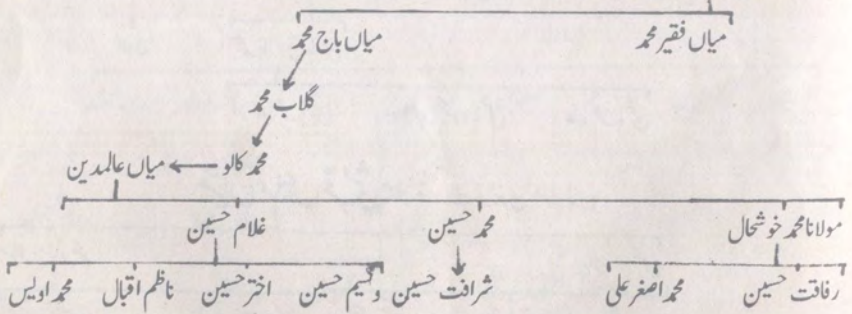 میاں فقیر محمد میاں باج محمد
گلاب محمد
محمد کالو میاں عالمدین
مولانا محمد خوشحال محمد حسین غلام حسین
رفاقت حسین محمد اصغر علی شرافت حسین وسیم حسین اختر حسین ناظم اقبال محمد اویس